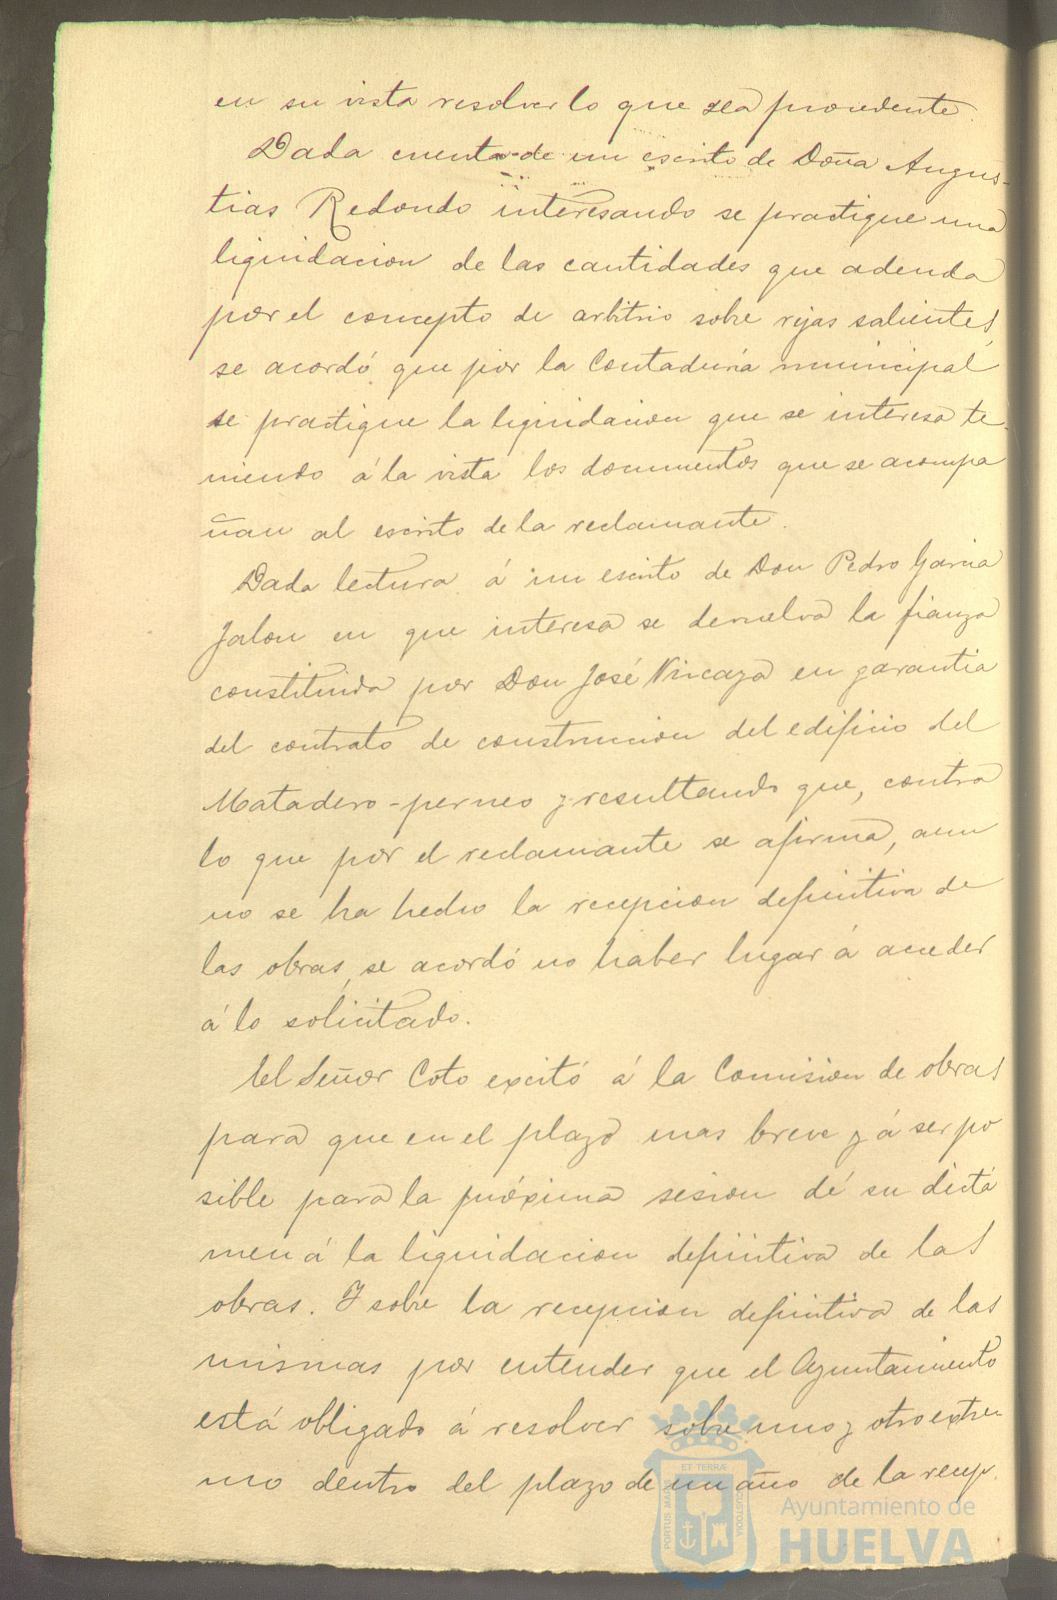 en su vista resolver lo que sea procedente.
Dada cuenta de un escrito de Doña Angus-
tias Redondo interesando se practique una
liquidacion de las cantidades que adeuda
por el concepto de arbitrio sobre rejas salientes,
se acordó que por la Contaduria municipal
se practique la liquidacion que se interesa te-
niendo á la vista los documentos que se acompa
ñan al escrito de la reclamante.
Dada lectura á un escrito de Don Pedro Garcia
Jalon en que interesa se devuelva la fianza
constituida por Don José Vizcaya en garantia
del contrato de construccion del edificio del
Matadero-perneo y resultando que, contra
lo que por el reclamante se afirma, aun
no se ha hecho la recepcion definitiva de
las obras, se acordó no haber lugar á acceder
á lo solicitado.
El Señor Coto excitó á la Comision de obras
para que en el plazo mas breve y á ser po
sible para la próxima sesion dé su dictá
men á la liquidacion definitiva de las
obras. Y sobre la recepcion definitiva de las
mismas por entender que el Ayuntamiento
está obligado á resolver sobre uno y otro extre-
mo dentro del plazo de un año de la recep.
PORTUS MARIS
ET TERRÆ
CUSTODIA
Ayuntamiento de
HUELVA